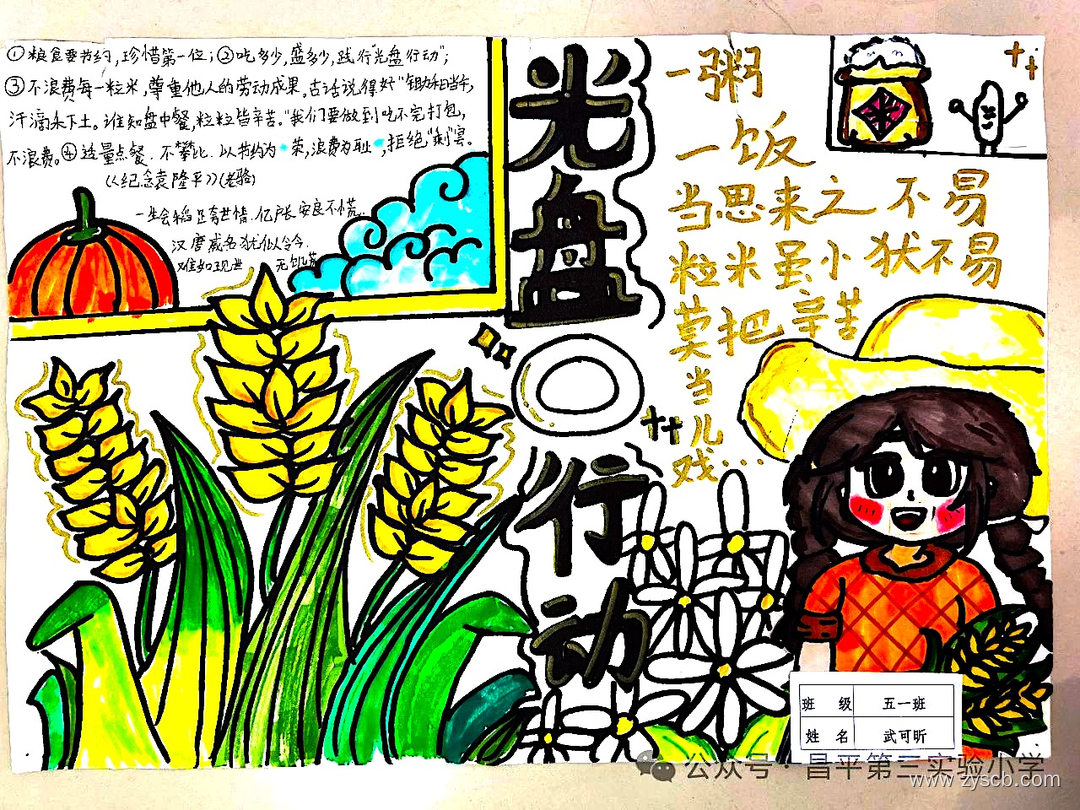 ①粮食要节约,珍惜第一位;②吃多少,盛多少,践行"光盘行动";
③不浪费每一粒米,尊重他人的劳动成果。古话说得好"锄禾日当午,
汗滴禾下土。谁知盘中餐,粒粒皆辛苦。"我们要做到吃不完打包,
不浪费。④适量点餐.不攀比.以节约为荣,浪费为耻,拒绝"剩"宴。
《纪念袁隆平》(老验)
一生会稻足寄世情.亿户长安良不慌
汉唐威名犹似今.
难如现世 无饥荒
光盘行动
一粥
一饭
当思来之不易
粒米虽小犹不易
莫把辛苦
当儿
戏...
米
班 级 五一班
姓 名 武可昕
公众号·昌平第三实验小学
www.zyscb.com